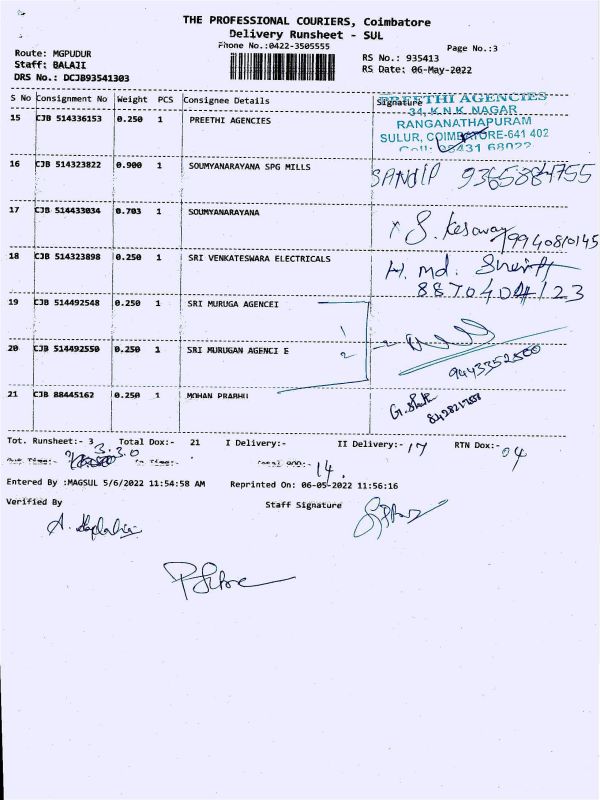 THE PROFESSIONAL COURIERS, Coimbatore
Delivery Runsheet - SUL
Phone No.:0422-3505555
Page No.:3
Route: MGPUDUR
RS No.: 935413
Staff: BALAJI
RS Date: 06-May-2022
DRS No.: DCJB93541303
S No Consignment No Weight PCS Consignee Details Signature
15 CJB 514336153 0.250 1 PREETHI AGENCIES
PREETHI AGENCIES
34, K.N.K. NAGAR
RANGANATHAPURAM
SULUR, COIMBATORE-641 402
Cell: 98431 68022
16 CJB 514323822 0.900 1 SOUMYANARAYANA SPG MILLS
SANJIP 9365884755
17 CJB 514433034 0.703 1 SOUMYANARAYANA
S. Kesavan
9940810145
18 CJB 514323898 0.250 1 SRI VENKATESWARA ELECTRICALS
H. md. Sheriff
8870404123
19 CJB 514492548 0.250 1 SRI MURUGA AGENCEI
1
20 CJB 514492550 0.250 1 SRI MURUGAN AGENCI E
2
9443352500
21 CJB 88445162 0.250 1 MOHAN PRABHU
Tot. Runsheet:- 3 Total Dox:- 21 I Delivery:- II Delivery:- 17 RTN Dox:- 04
Out Time:- 3.30 In Time:- Total POD:- 14
Entered By :MAGSUL 5/6/2022 11:54:58 AM Reprinted On: 06-05-2022 11:56:16
Verified By Staff Signature